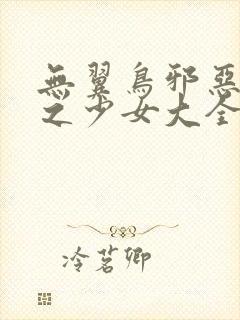 無翼鳥邪惡
之少女大全
冷茗卿